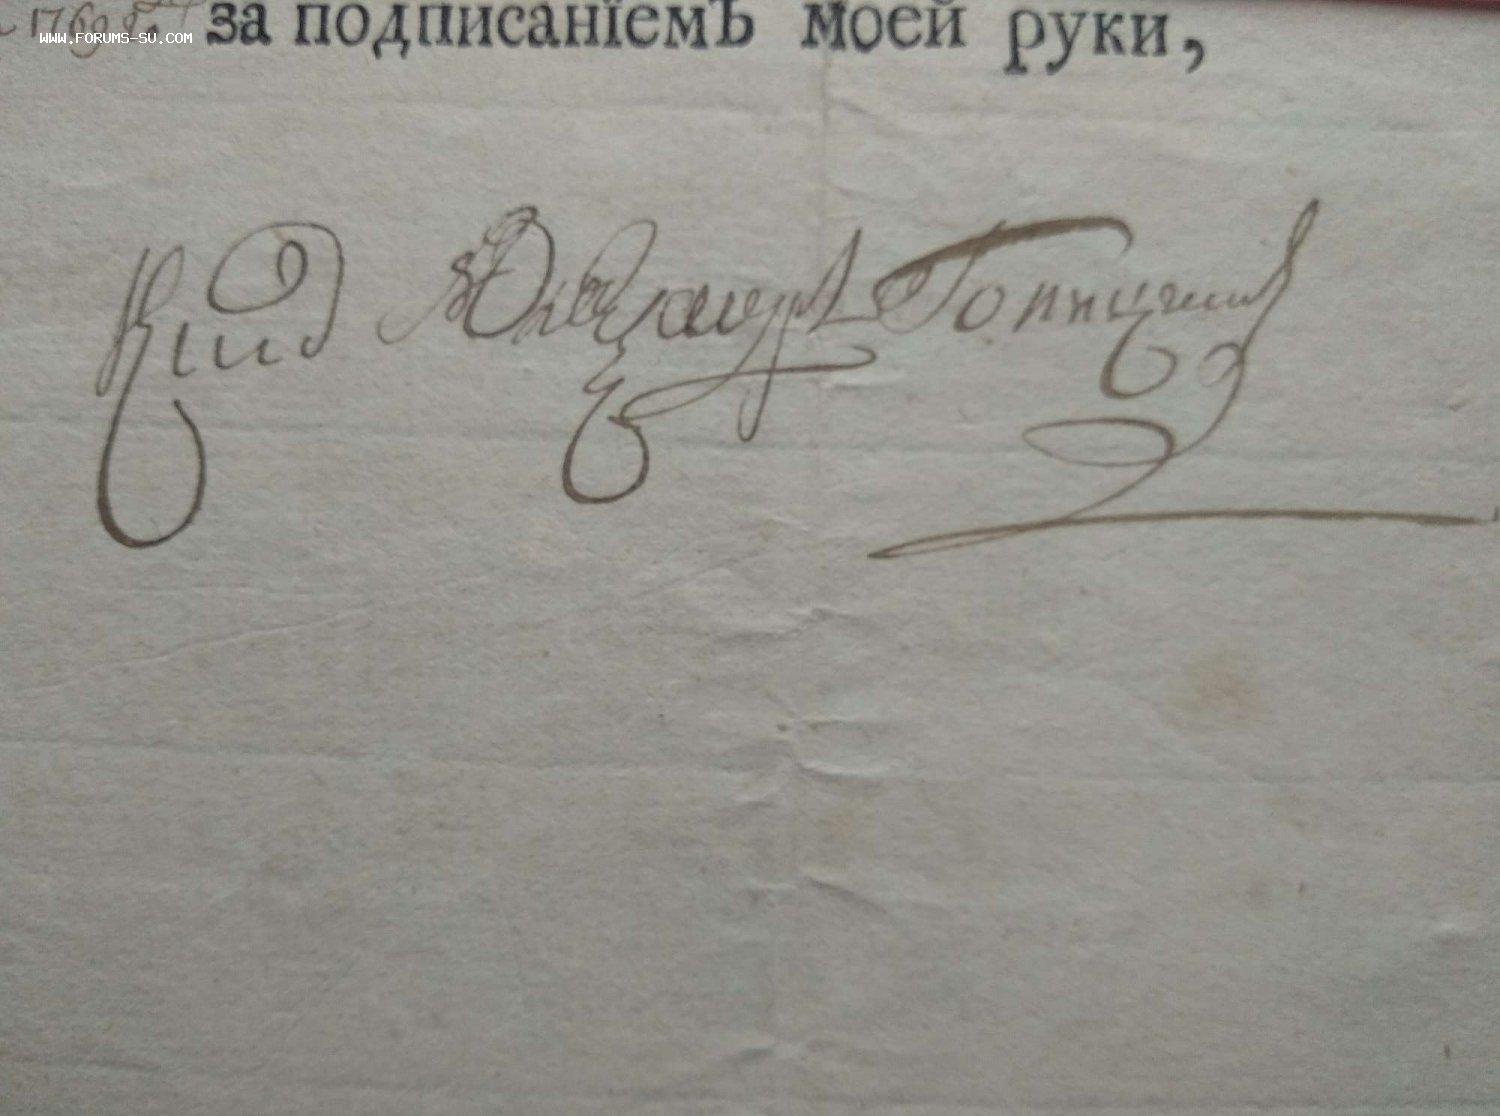 1769 за подписанїемЪ моей руки,
WWW.FORUMS-SU.COM
Кнзь Александръ Голицынъ